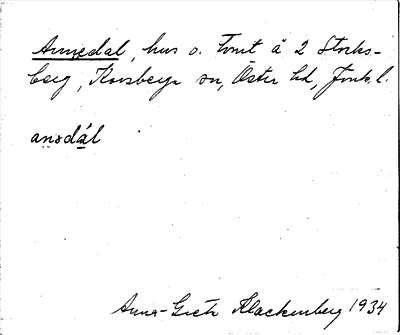 Annedal, hus o. tomt å 2 Stocks-
berg, Korsberga sn, Öster hd, Jönk. l.
ansdál
Anna-Greta Klackenberg 1934